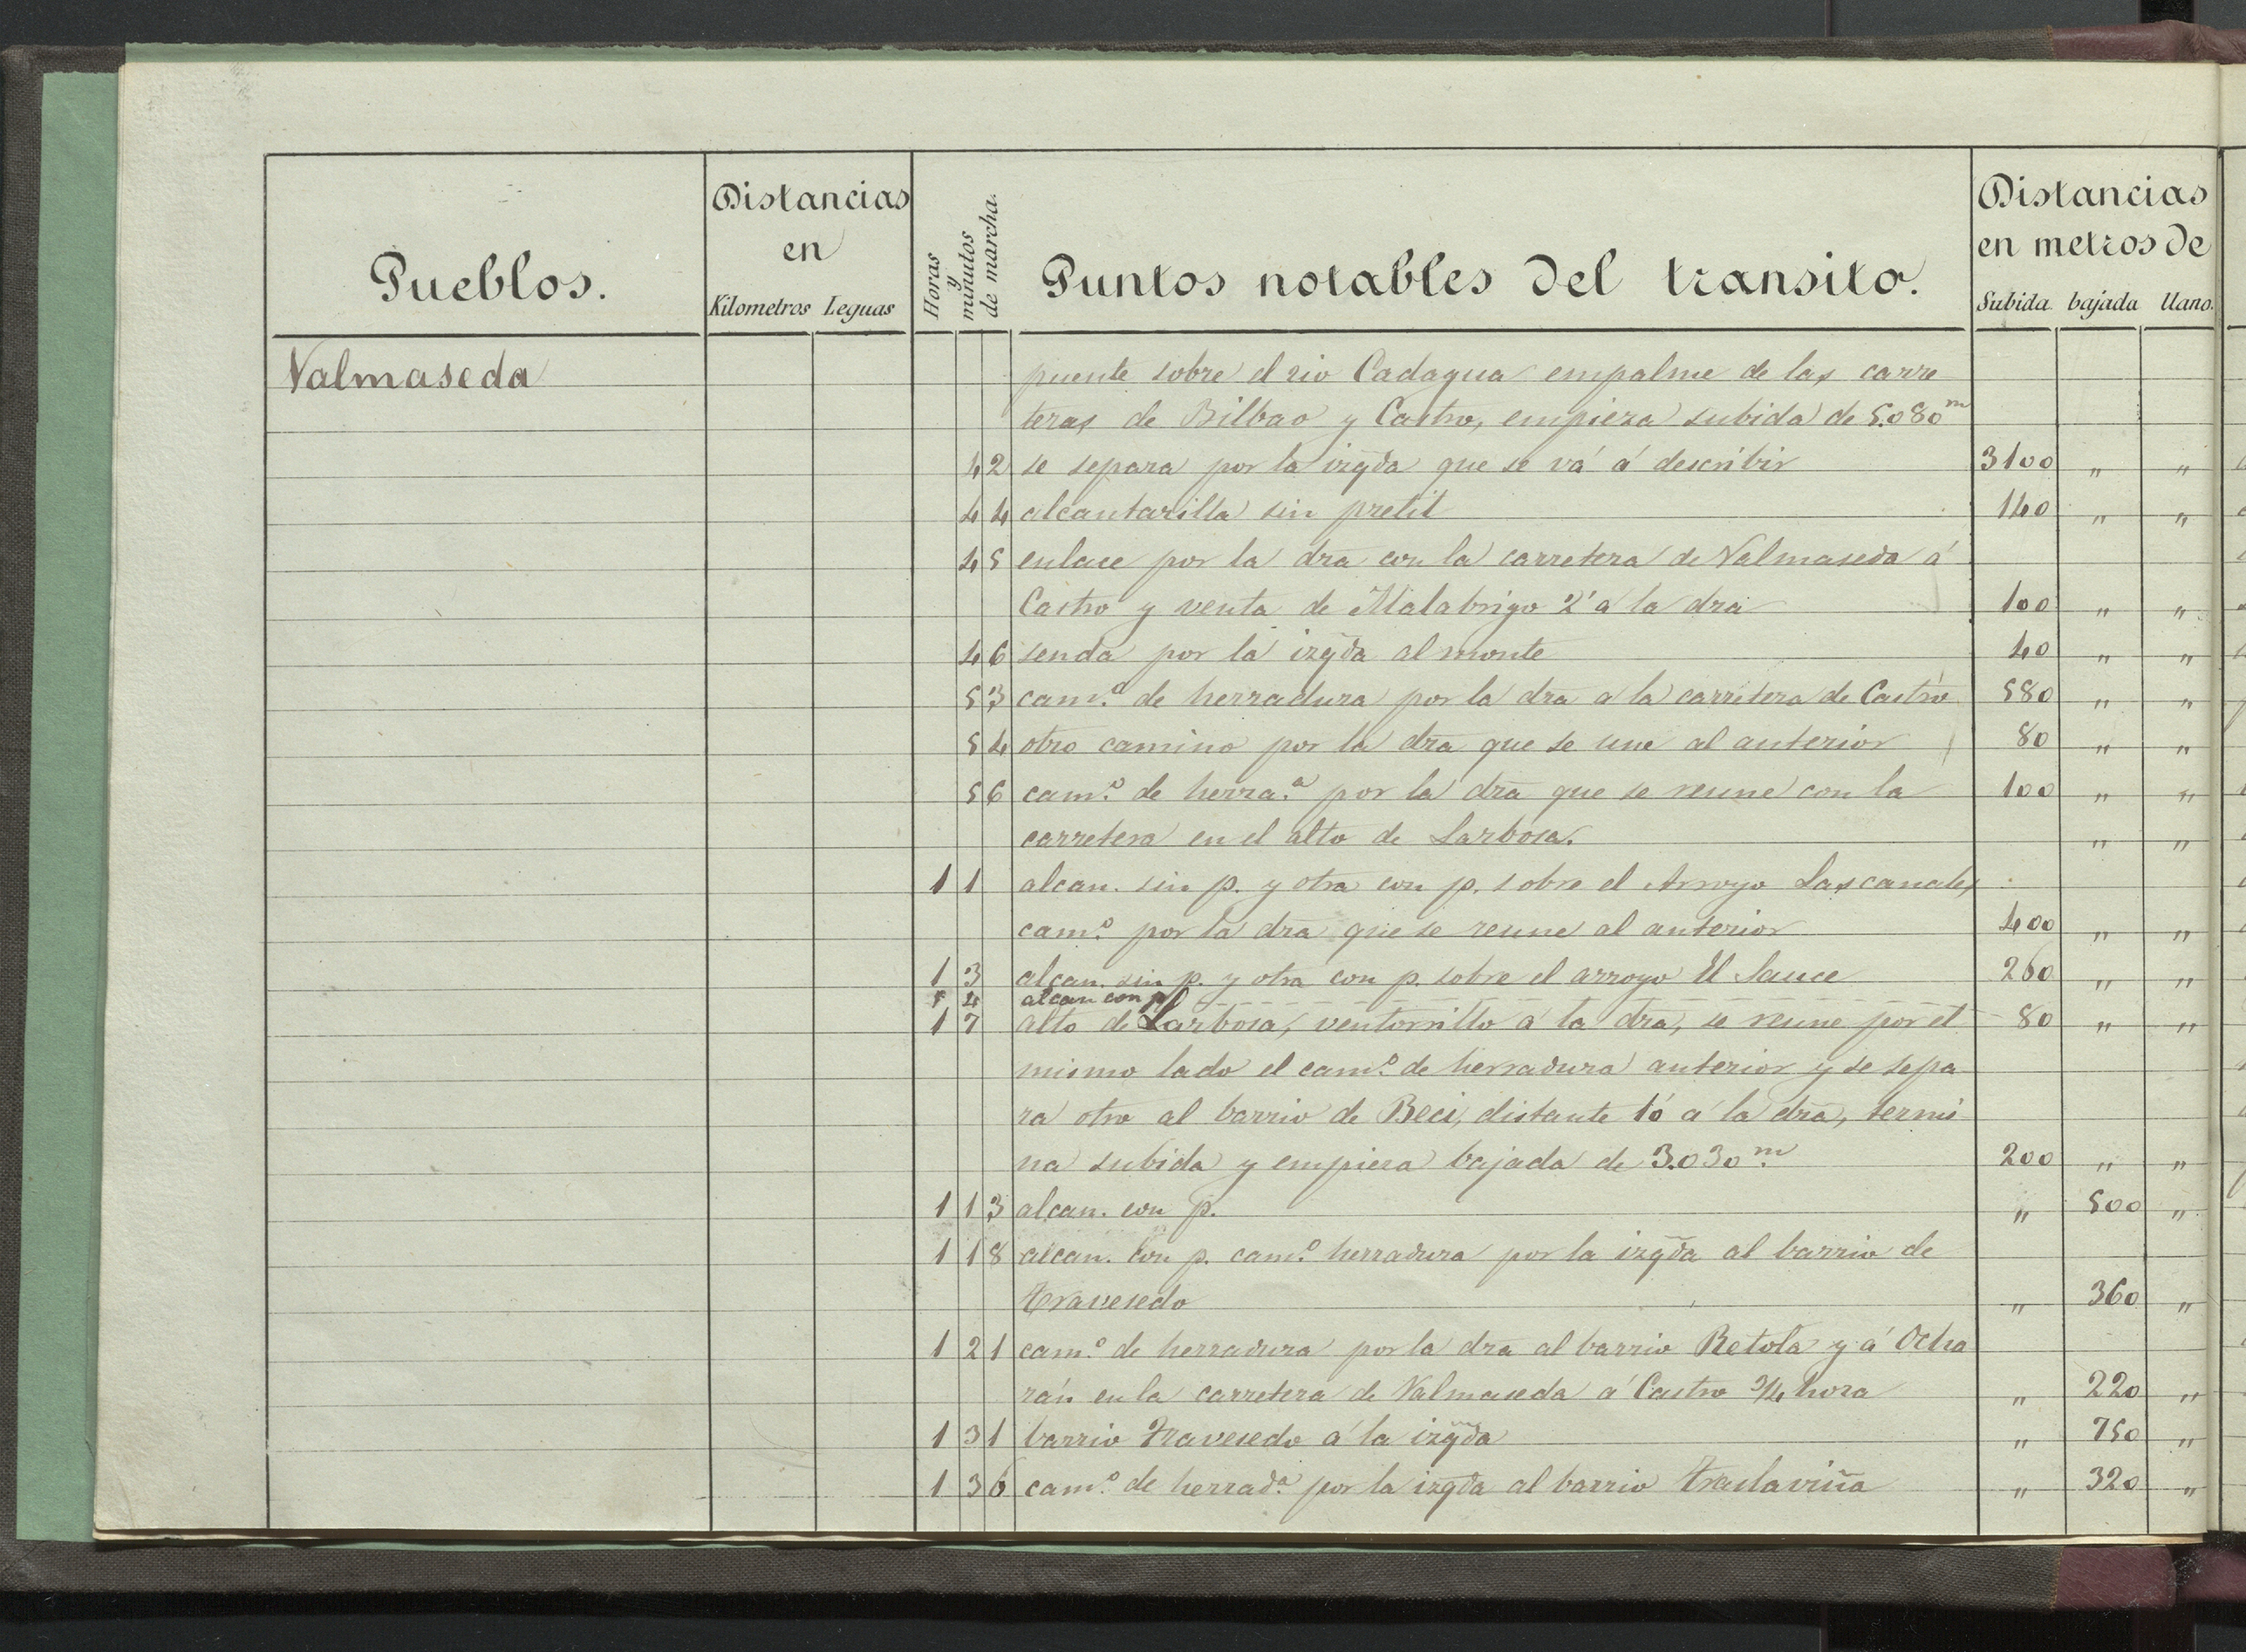 Pueblos.
Distancias
en
Kilometros Leguas
Horas
y
minutos
de marcha.
Puntos notables del transito.
Distancias
en metros de
Subida. bajada llano.
Valmaseda puente sobre el rio Cadagua empalme de las carre
teras de Bilbao y Castro, empieza subida de 5.080m
42 se separa por la izqda que se vá á describir 3100 " "
44 alcantarilla sin pretil 140 " "
45 enlace por la dra con la carretera de Valmaseda á
Castro y venta de Malabrigo 2' a la dra 100 " "
46 senda por la izqda al monte 40 " "
53 cam.o de herradura por la dra a la carretera de Castro 580 " "
54 otro camino por la dra que se une al anterior 80 " "
56 cam.o de herra.a por la dra que se reune con la 100 " "
carretera en el alto de Larbosa. " "
1 1 alcan. sin p. y otra con p. sobre el Arroyo Lascanales,
cam.o por la dra que se reune al anterior 400 " "
1 3 alcan. sin p. y otra con p. sobre el arroyo El Sauce 260 " "
1 4 alcan con p
1 7 alto de Larbosa, ventorrillo á la dra, se reune por el 80 " "
mismo lado el cam.o de herradura anterior y se sepa
ra otro al barrio de Beci, distante 10' a la dra, termi
na subida y empieza bajada de 3.030m. 200 " "
1 13 alcan. con p. " 500 "
1 18 alcan. con p. cam.o herradura por la izqda al barrio de
Travesedo " 360 "
1 21 cam.o de herradura por la dra al barrio Retola y á Ocha
rán en la carretera de Valmaseda á Castro 3/4 hora " 220 "
1 31 barrio Travesedo á la izqda " 750 "
1 36 cam.o de herrad.a por la izqda al barrio Traslaviña " 320 "